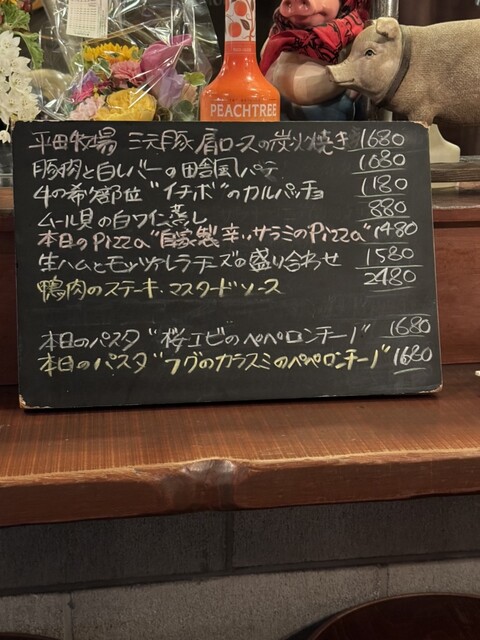 PEACHTREE
平田牧場 三元豚 肩ロースの炭火焼き 1680
豚肉と白レバーの田舎風パテ 1080
牛の希少部位 "イチボ"のカルパッチョ 1180
ムール貝の白ワイン蒸し 880
本日のPizza "自家製辛いサラミのPizza" 1480
生ハムとモッツァレラチーズの盛り合わせ 1580
鴨肉のステーキ マスタードソース 2480
本日のパスタ "桜エビのペペロンチーノ" 1680
本日のパスタ "フグのカラスミのペペロンチーノ" 1680